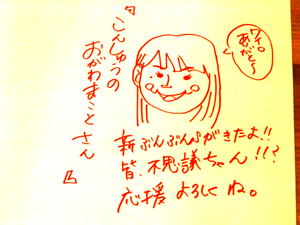 『こんしゅうの
おがわまことさん』
ウィ。
あがと〜
新ぶんぶん♪がきたよ!!
皆、不思議ちゃん!!?
応援 よろしくね。